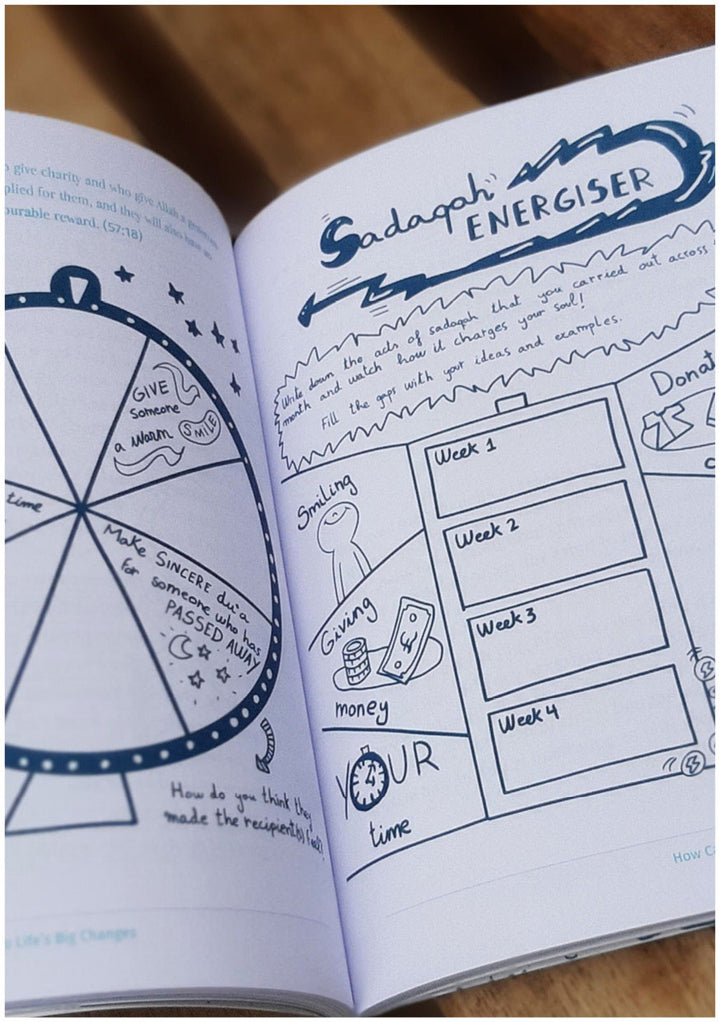 give charity and who give Allah a
plied for them, and they will also have an
ourable reward. (57:18)
GIVE
Someone
a warm SMILE
time
Make SINCERE du'a
for someone who has
PASSED AWAY
How do you think they
made the recipient(s) feel?
Life's Big Changes
Sadaqah
ENERGISER
Write down the acts of sadaqah that you carried out across
month and watch how it charges your soul!
Fill the gaps with your ideas and examples.
Smiling
Giving
£
money
YOUR
time
Week 1
Week 2
Week 3
Week 4
Donat
How Ca